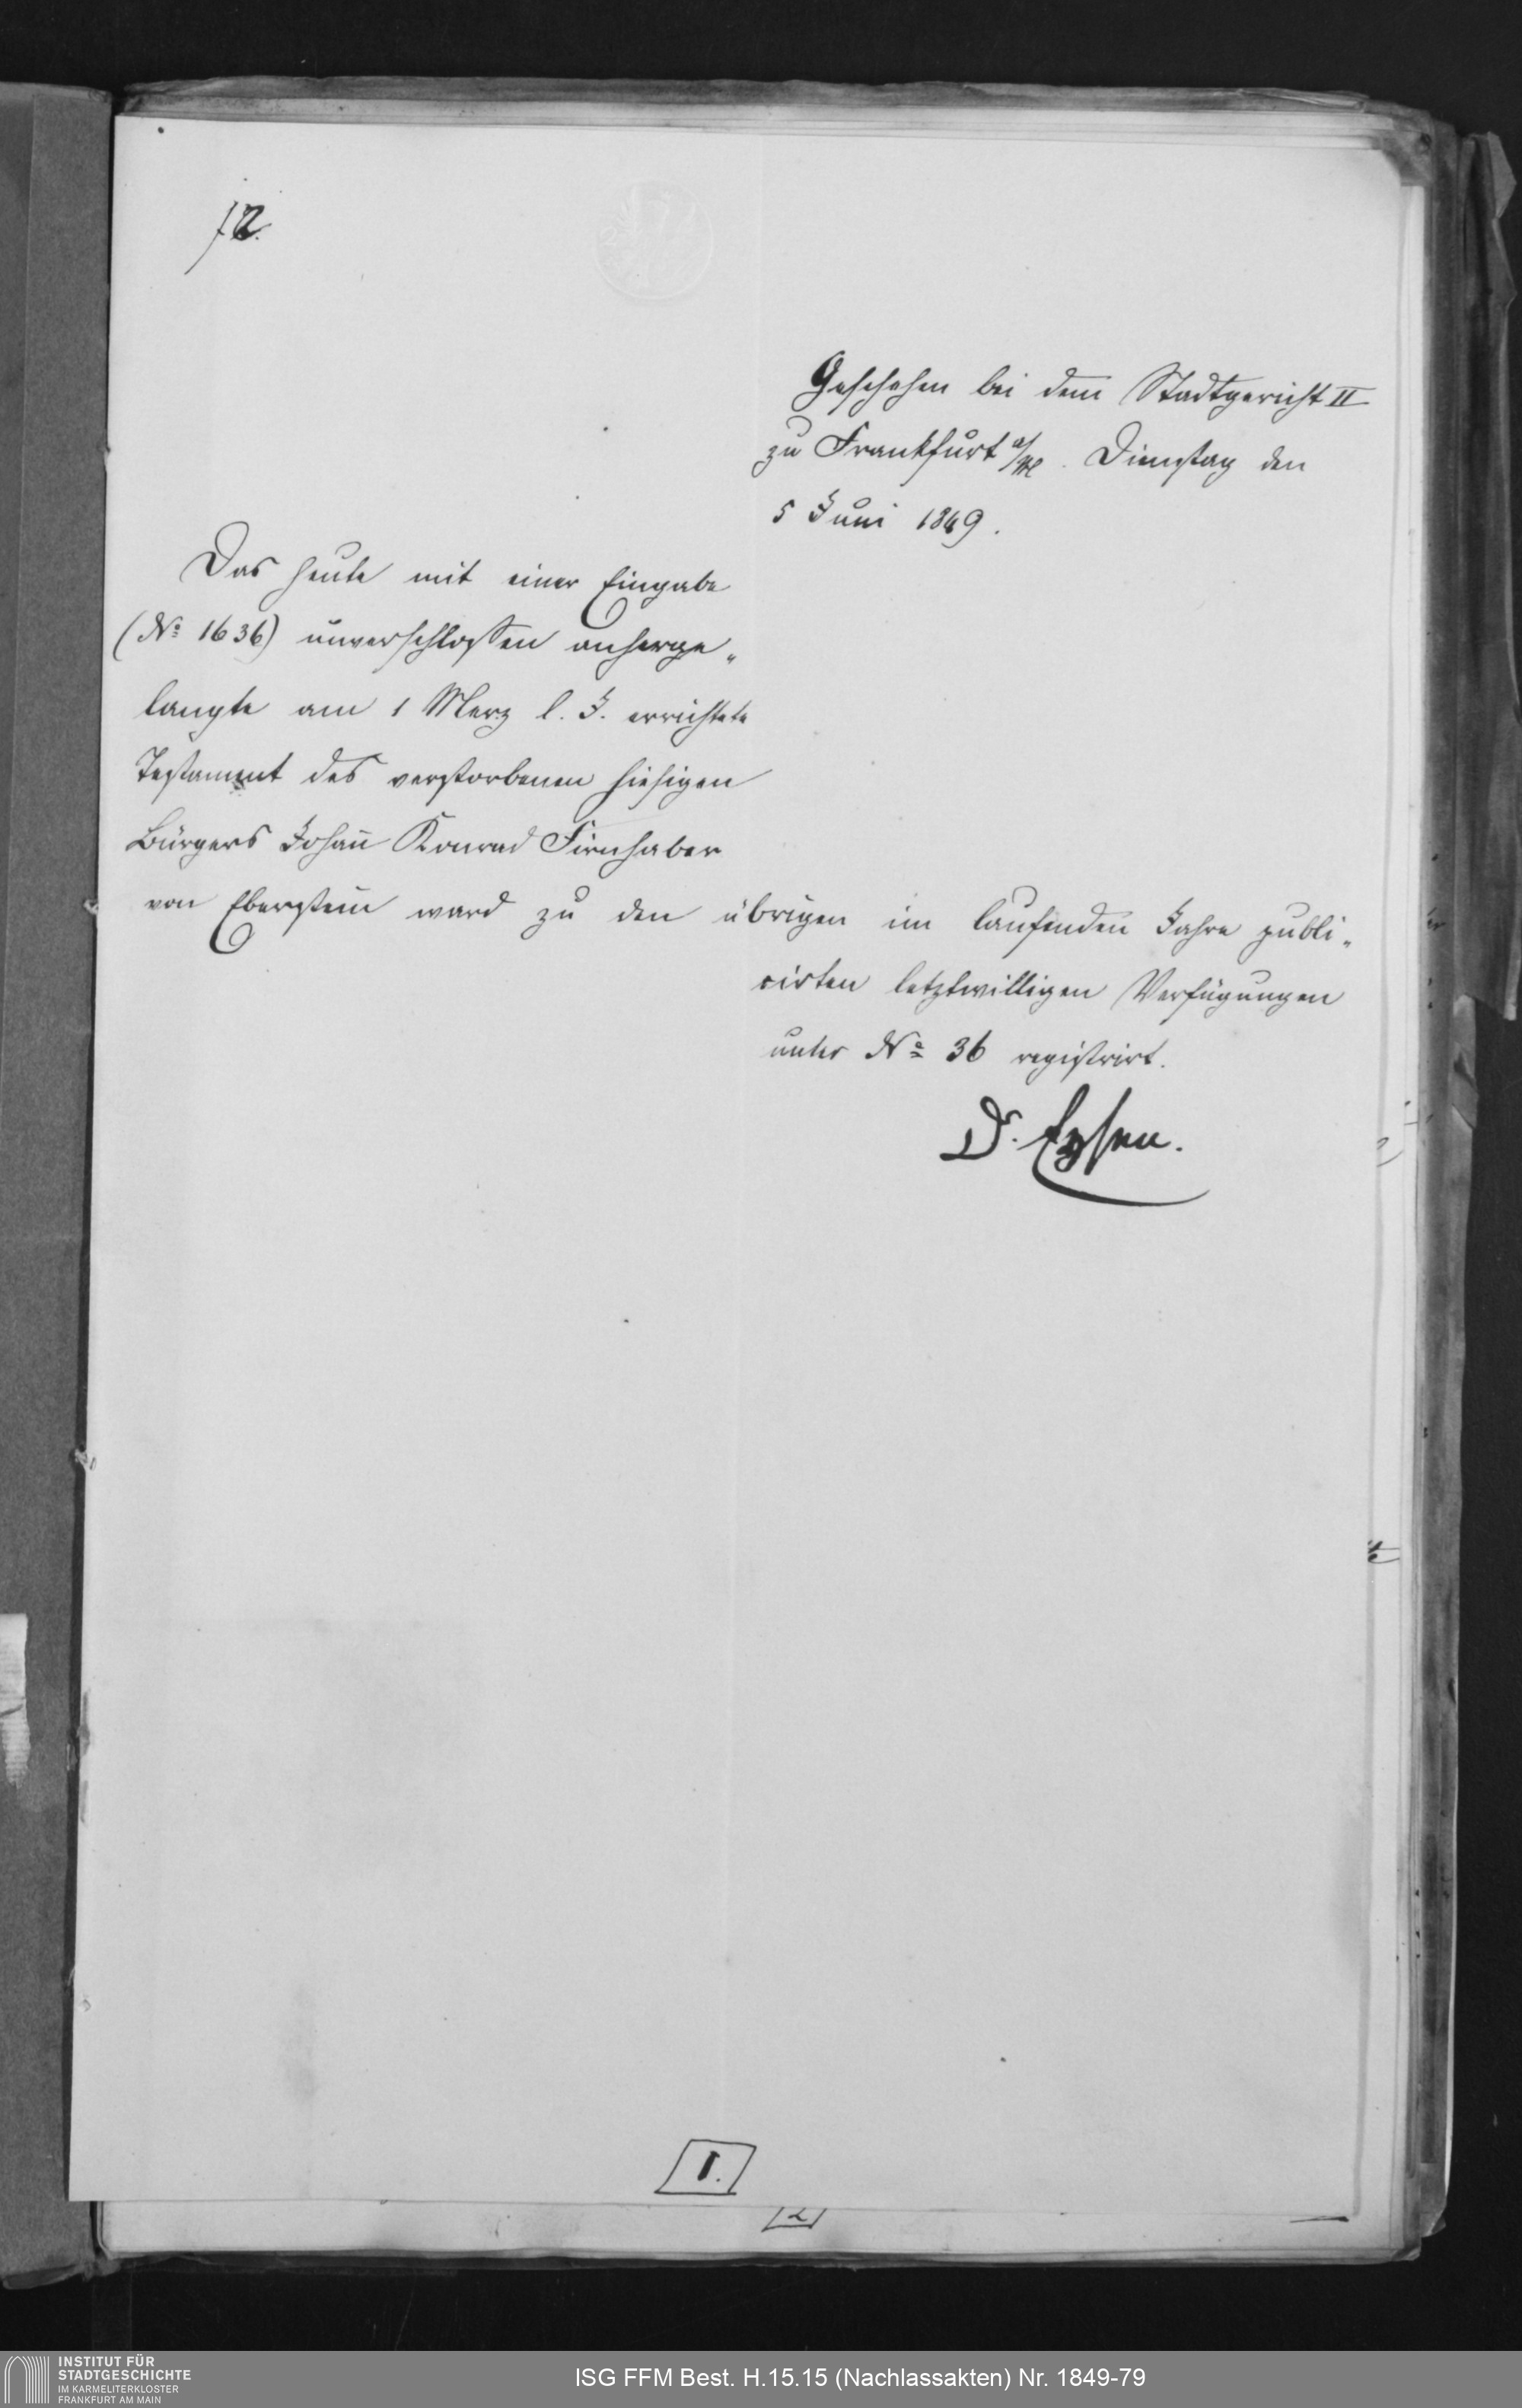 /2.
Geschehen bei dem Stadtgericht II
zu Frankfurt a/M. Dienstag den
5 Juni 1849.
Das heute mit einer Eingabe
(No 1636) unverschlossen anherge„
langte am 1 Merz l. J. errichtete
Testament des verstorbenen hiesigen
Bürgers Johañ Konrad Firnhaber
von Eberstein ward zu den übrigen im laufenden Jahre publi„
cirten letztwilligen Verfügungen
unter No 36 registrirt.
D.
1.
2
INSTITUT FÜR
STADTGESCHICHTE
IM KARMELITERKLOSTER
FRANKFURT AM MAIN
ISG FFM Best. H.15.15 (Nachlassakten) Nr. 1849-79